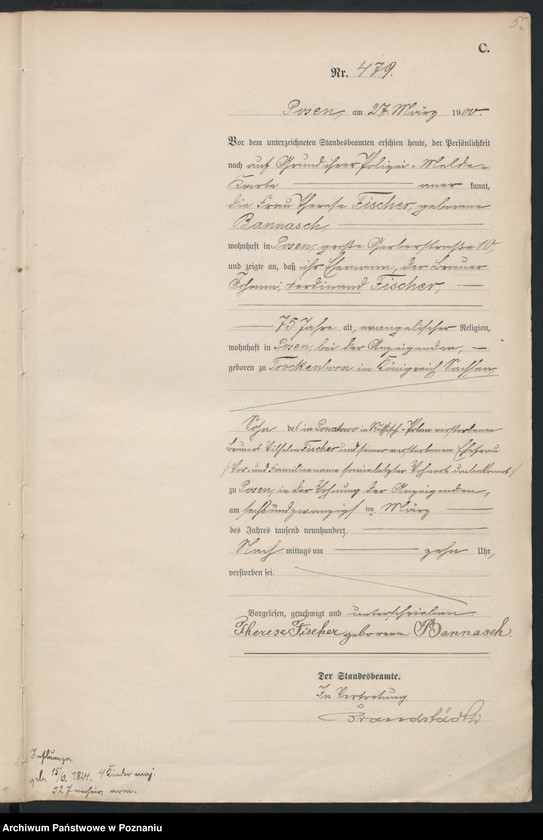 5.
C.
Nr. 479.
Posen, am 27. März 1900.
Vor dem unterzeichneten Standesbeamten erschien heute, der Persönlichkeit
nach auf Grund ihrer Polizei-Melde-
Karte aner kannt,
die Frau Therese Fischer, geborene
Bannasch,
wohnhaft in Posen, große Gerberstraße 10,
und zeigte an, daß ihr Ehemann, der Brauer
Johann Ferdinand Fischer,
75 Jahre alt, evangelischer Religion,
wohnhaft in Posen, bei der Anzeigenden,
geboren zu Trockenborn im Königreich Sachsen
Sohn des in in Russisch-Polen verstorbenen
Brauers Wilhelm Fischer und seiner verstorbenen Ehefrau
(Vor- und Familienname sowie letzter Wohnort unbekannt)
zu Posen, in der Wohnung der Anzeigenden,
am sechsundzwanzigsten März
des Jahres tausend neunhundert,
Nach mittags um zehn Uhr,
verstorben sei.
Vorgelesen, genehmigt und unterschrieben
Therese Fischer geborene Bannasch
Der Standesbeamte.
In Vertretung
geb. 15/6. 1824. 4 Kinder maj.
32 7
Archiwum Państwowe w Poznaniu